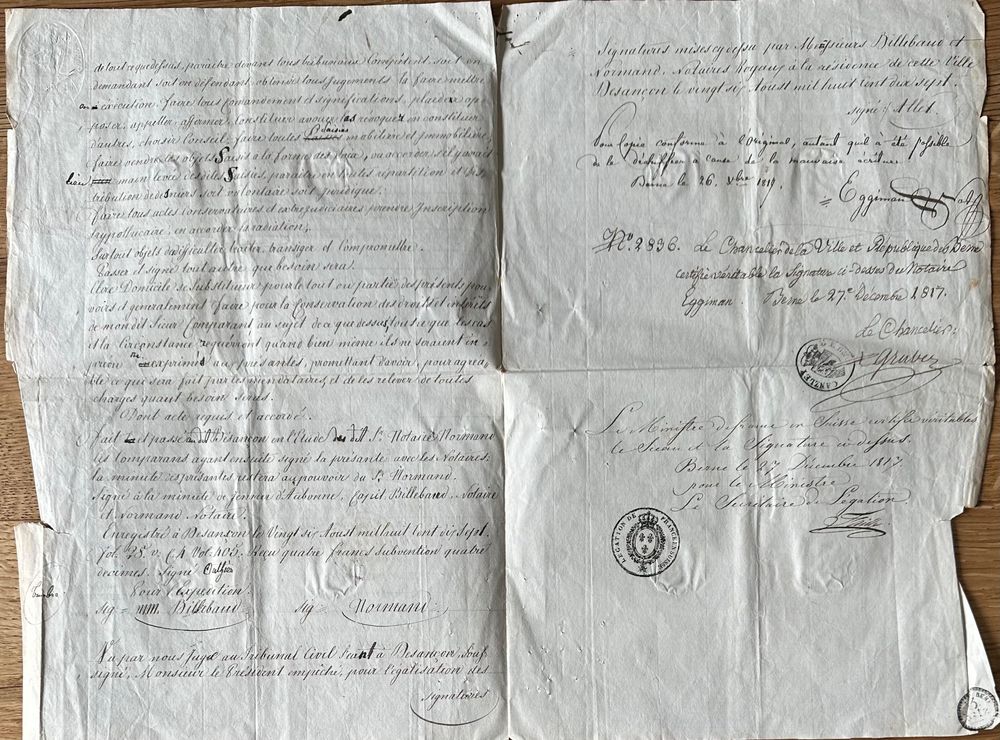 de tout ce que dessus, paraitre devant tous tribunaux Compétent soit en
demandant soit en défendant, obtenir tous Jugements la faire mettre
en exécution, faire tous commandement et significations, plaider, op-
poser, appeller, affirmer, Constituer avoués les révoquer en constituer
d'autres, choisir Conseil, faire toutes Saisies mobilière et immobilière,
faire vendre les objets Saisis à la forme des Loix, ou accorder s'il y avait
lieu main levée des dites Saisies, paraitre en toutes répartition et Dis-
tribution de deniers soit volontaire soit juridique.
faire tous actes Conservatoires et extrajudiciaires prendre Inscription
hypothécaire, en accorder la radiation,
Sur tout objets de difficulter traiter, transiger et Compromettre.
Passer et signé tout autre que besoin sera.
Elire Domicile se Substituer pour le tout ou partie des présents pou-
voirs et generalement faire pour la Conservation des droits et interêts
de mon dit Sieur Comparant au sujet de ce que dessus, tous ce que les cas
et la circonstance requerront quand bien même ils ne seraient
exprimé aux présentes, promettant d'avoir pour agréa-
ble ce qui sera fait par les mandataires et de les relever de toutes
charges quant besoin sera.
Dont acte requis et accordé.
Fait et passé à Besançon en l'Etude du dit Sr. Notaire Normand
les Comparans ayant ensuite signé la présante avec les Notaires,
la minute des présantes restera au pouvoir du Sr. Normand.
Signé à la minute de Jenner d'Aubonne, Billebaud, Notaire
et Normand Notaire.
Enregistré à Besançon le Vingt six Aoust mil huit Cent dix Sept.
fol. 28. v. C. 4 Vol. 103. Reçu quatre francs subvention quatre
decimes. Signé
Pour Expedition.
sig = Billebaud sig = Normand
Vu par nous Juge au Tribunal Civil Séant à Besançon, Sous-
signé, Monsieur le Président empêché, pour légalisation des
signatures
Signatures mises cy dessu par Messieurs Billebaud et
Normand, Notaires Royaux à la résidence de cette Ville
Besançon le vingt six Aoust mil huit Cent dix sept.
signé: Allet
Pour Copie conforme à l'Original, autant qu'il a été possible
de le déchiffrer à cause de la mauvaise écriture
Berne le 26. Xbre 1817.
= Eggiman Not.
No. 2836. Le Chancelier de la Ville et République de Berne
certifie véritable la Signature ci-dessus du Notaire
Eggiman. Berne le 27.e Décembre 1817.
Le Chancelier:
Gruber
CANZLEY
Le Ministre de france en Suisse certifie véritables
le Sceau et la Signature ci-dessus.
Berne le 27 Décembre 1817
pour le Ministre
Le Secrétaire de Légation
LEGATION DE FRANCE EN SUISSE